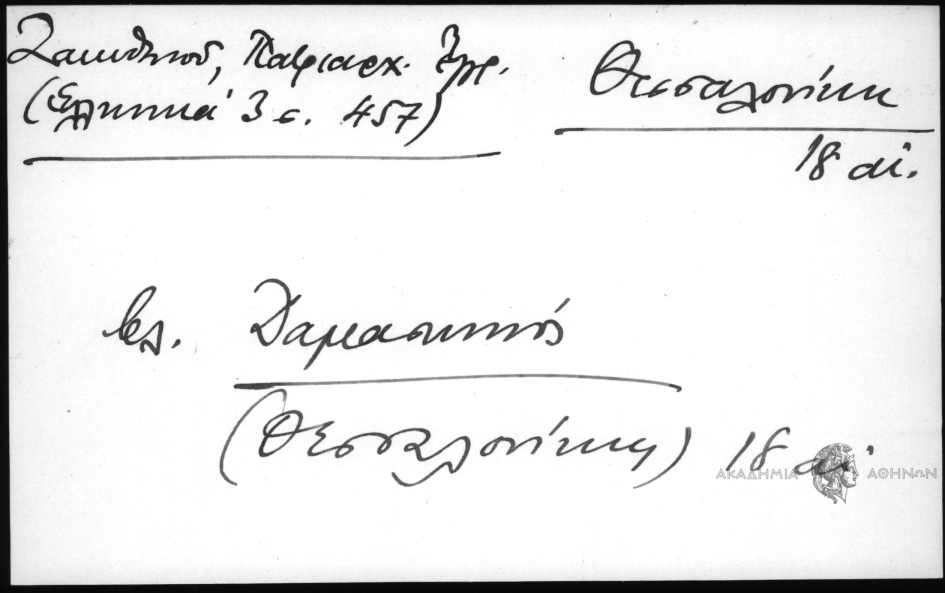 Ζακυθηνοῦ, Πατριαρχ. Ἔγγρ.
(Ἑλληνικά 3 σ. 457)
Θεσσαλονίκη
18 αἰ.
βλ. Δαμασκηνός
(Θεσσαλονίκης) 18 αἰ.
ΑΚΑΔΗΜΙΑ ΑΘΗΝΩΝ